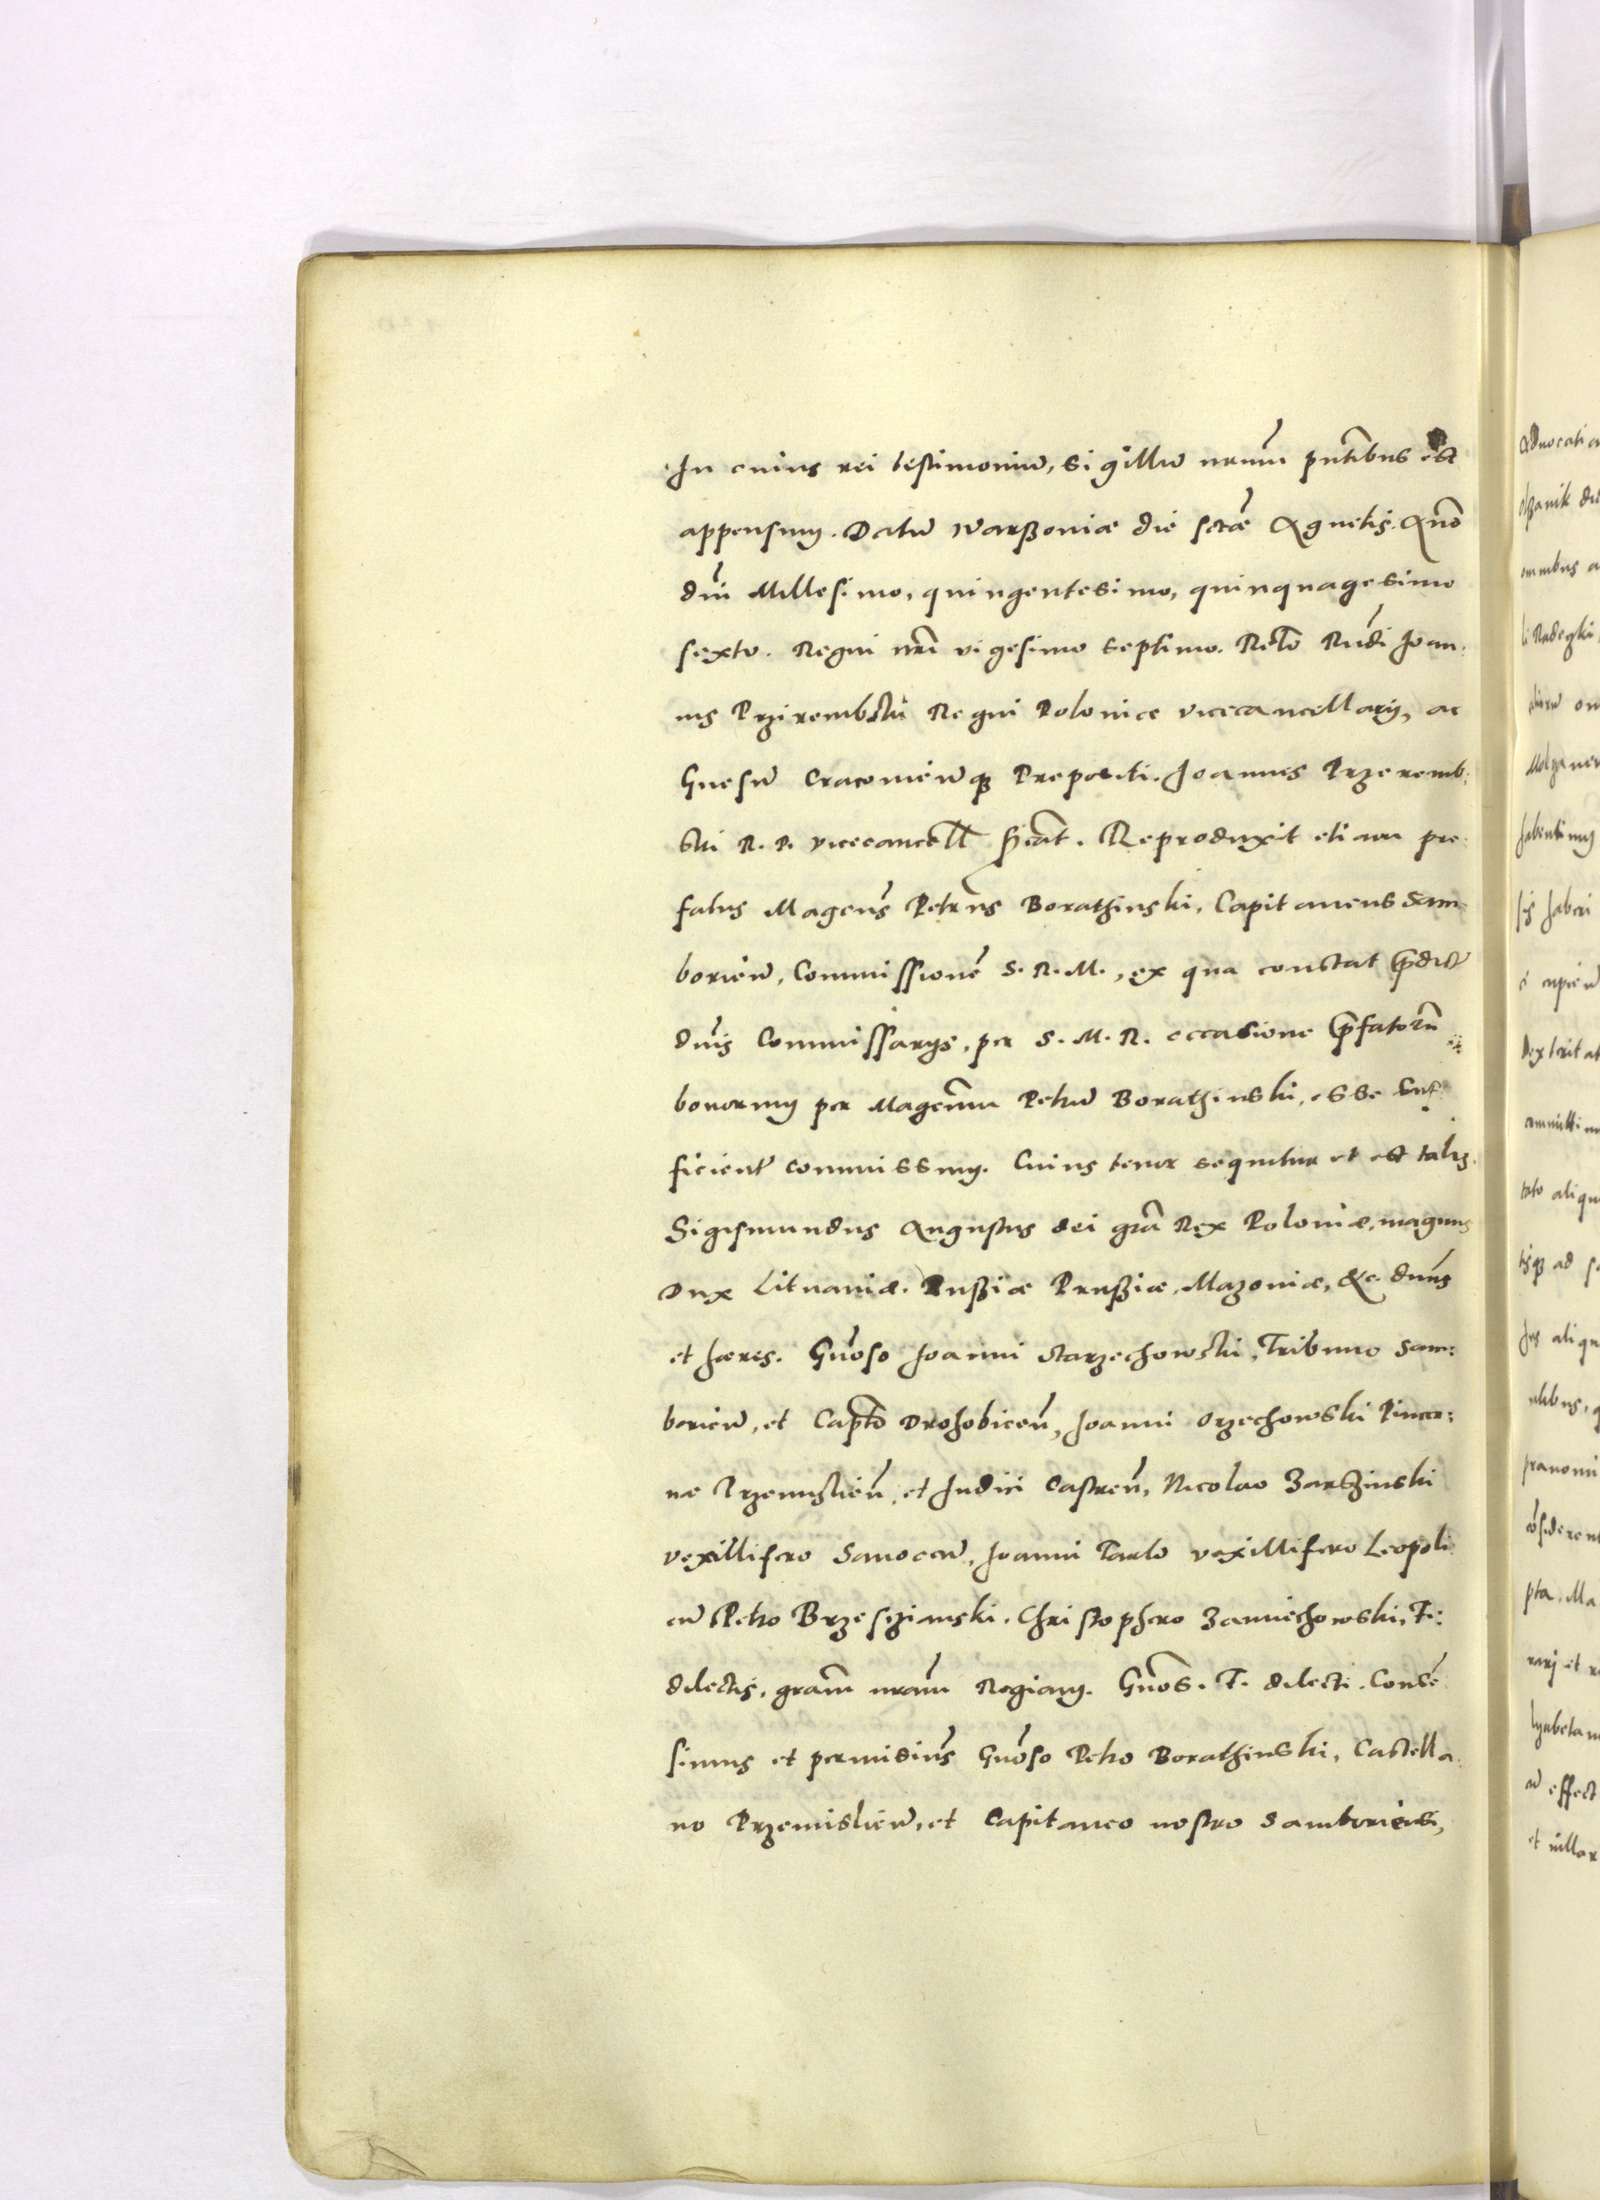 In cuius rei testimoniu, sigillu nrum pntibus est
appensum. Datu Warßoviæ die sctæ Agnetis. Anno
dni Millesimo, quingentesimo, quinquagesimo
sexto. Regni nri vigesimo septimo. Relo Rndi Joan:
nis Przirembski Regni Poloniæ vicecancellarij, ac
Gnesn Cracovien q Prepositi. Joannes Przeremb:
ski R. P. vicecancell sscat. Reproduxit etiam pre:
fatus Magcus Petrus Borathinski, Capitaneus Sam:
borien, Commissione S. R. M., ex qua constat predict
dnis Commissarijs, per S. M. R. occasione prefatoru
bonorum per Magcum Petru Borathinski, esse suf:
ficient commissum. Cuius tenor sequitur et est talis.
Sigismundus Augustus dei gra Rex Poloniæ, magnus
Dux Lituaniæ. Rußiæ Prußiæ, Mazoviæ, &c. dnus
et hæres. Gnoso Joanni Starzechowski, Tribuno Sam:
borien, et Capto Drohobicen, Joanni Orzechowski Pincer:
næ Przemislien, et Judici Castren, Nicolao Zarszinski
vexillifero Sanocen, Joanni Tarlo vexillifero Leopoli:
en Petro Brzesczianski. Christophero Zamiechowski, F:
dilectis, gram nram Regiam. Gnos. F. dilecti. Conse:
simus et permisius Gnoso Petro Borathinski, Castella:
no Przemislien, et Capitaneo nostro Samboriensi,